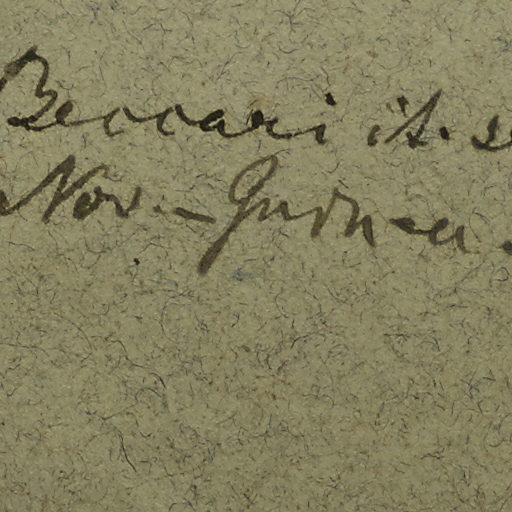 Beccari it. s
Nov. - Guinea.